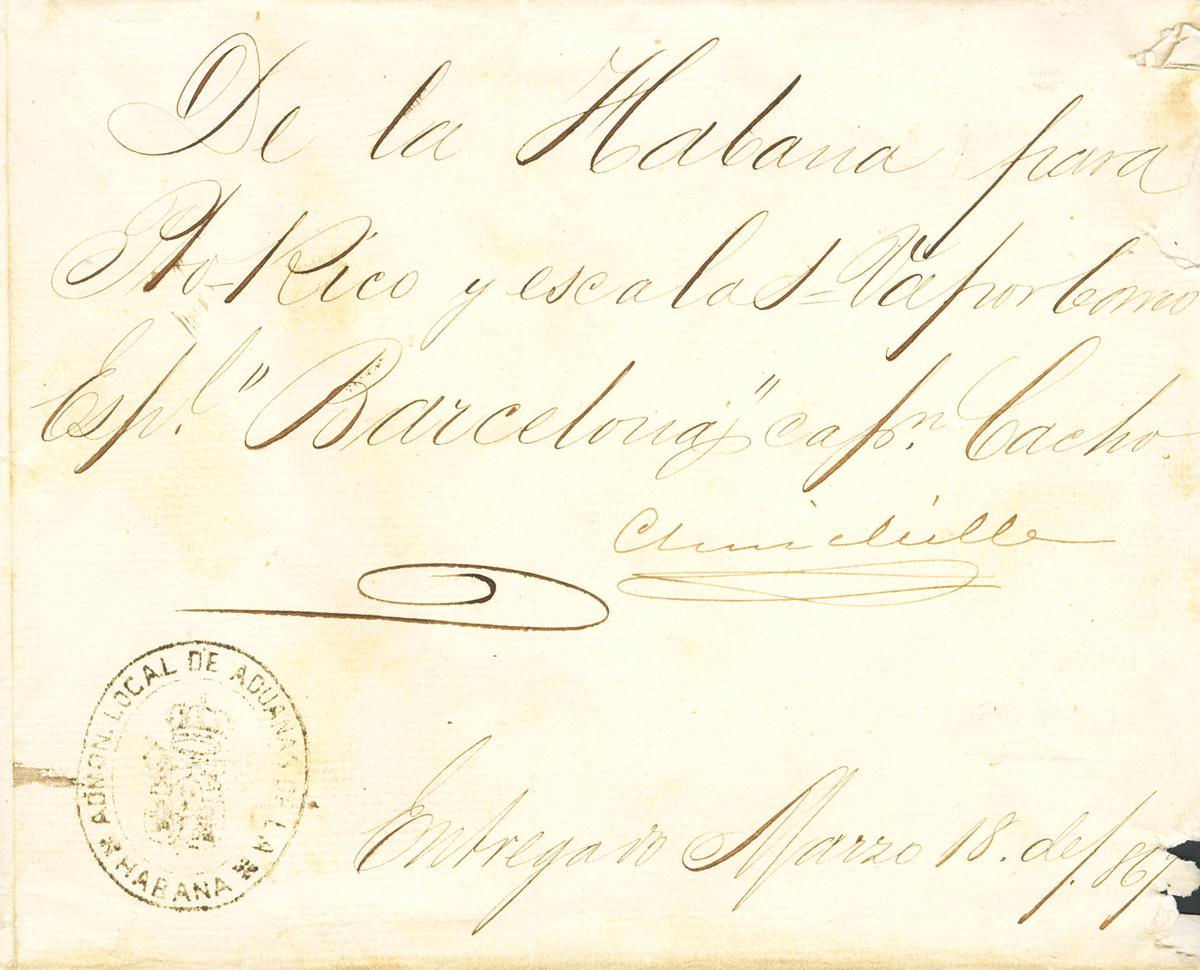 De la Habana para
Pto-Rico y escalas = Vapor Correo
Esp.l "Barcelona" capn. Cacho.
ADMON. LOCAL DE ADUANAS DE LA
HABANA
Entregado Marzo 18. de/. 867